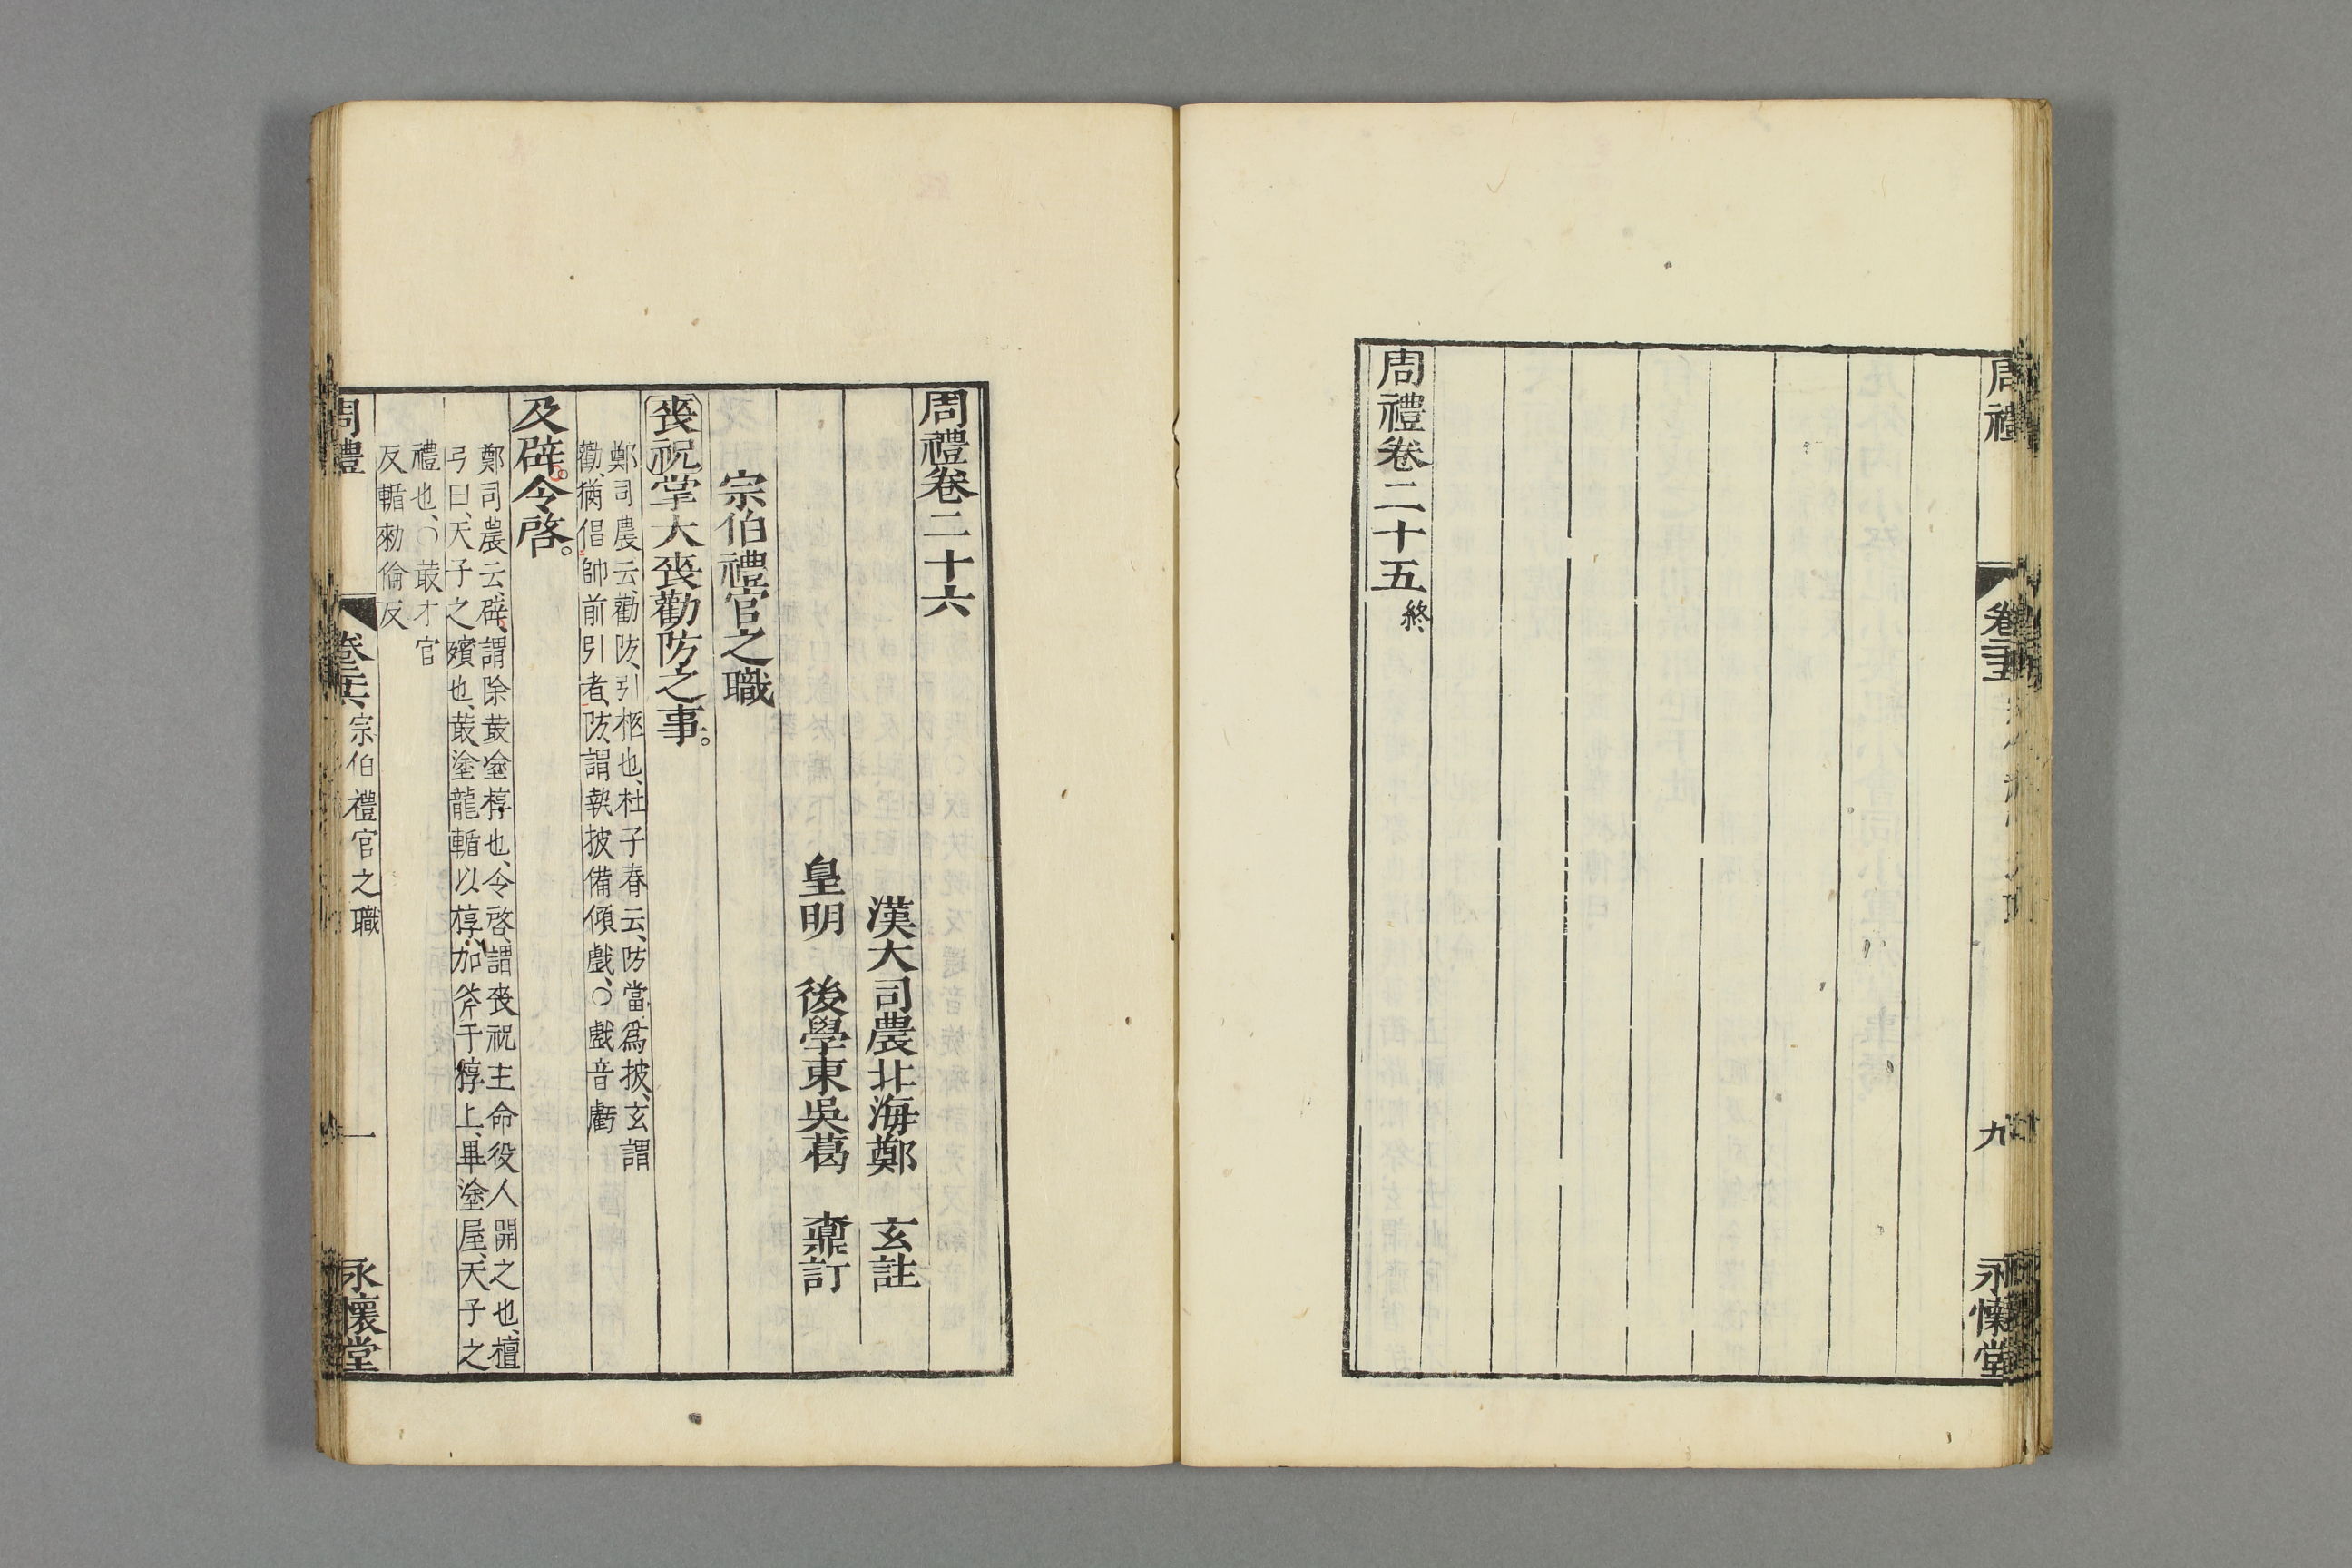 周禮
卷二十五
九
永懷堂
周禮卷二十五終
周禮卷二十六
漢大司農北海鄭　玄註
皇明　後學東吳葛　鼒訂
宗伯禮官之職
喪祝掌大喪勸防之事。
鄭司農云、勸防、引柩也、杜子春云、防當爲披、玄謂
勸、猶倡帥前引者、防、謂執披備傾戲、○戲音虧
及辟。令啓。
鄭司農云、辟、謂除菆塗椁也、令啓、謂喪祝主命役人開之也、檀
弓曰、天子之殯也、菆塗龍輴以椁、加斧于椁上、畢塗屋、天子之
禮也、○菆才官
反輴勑倫反
周禮
卷二十六、宗伯禮官之職
一
永懷堂